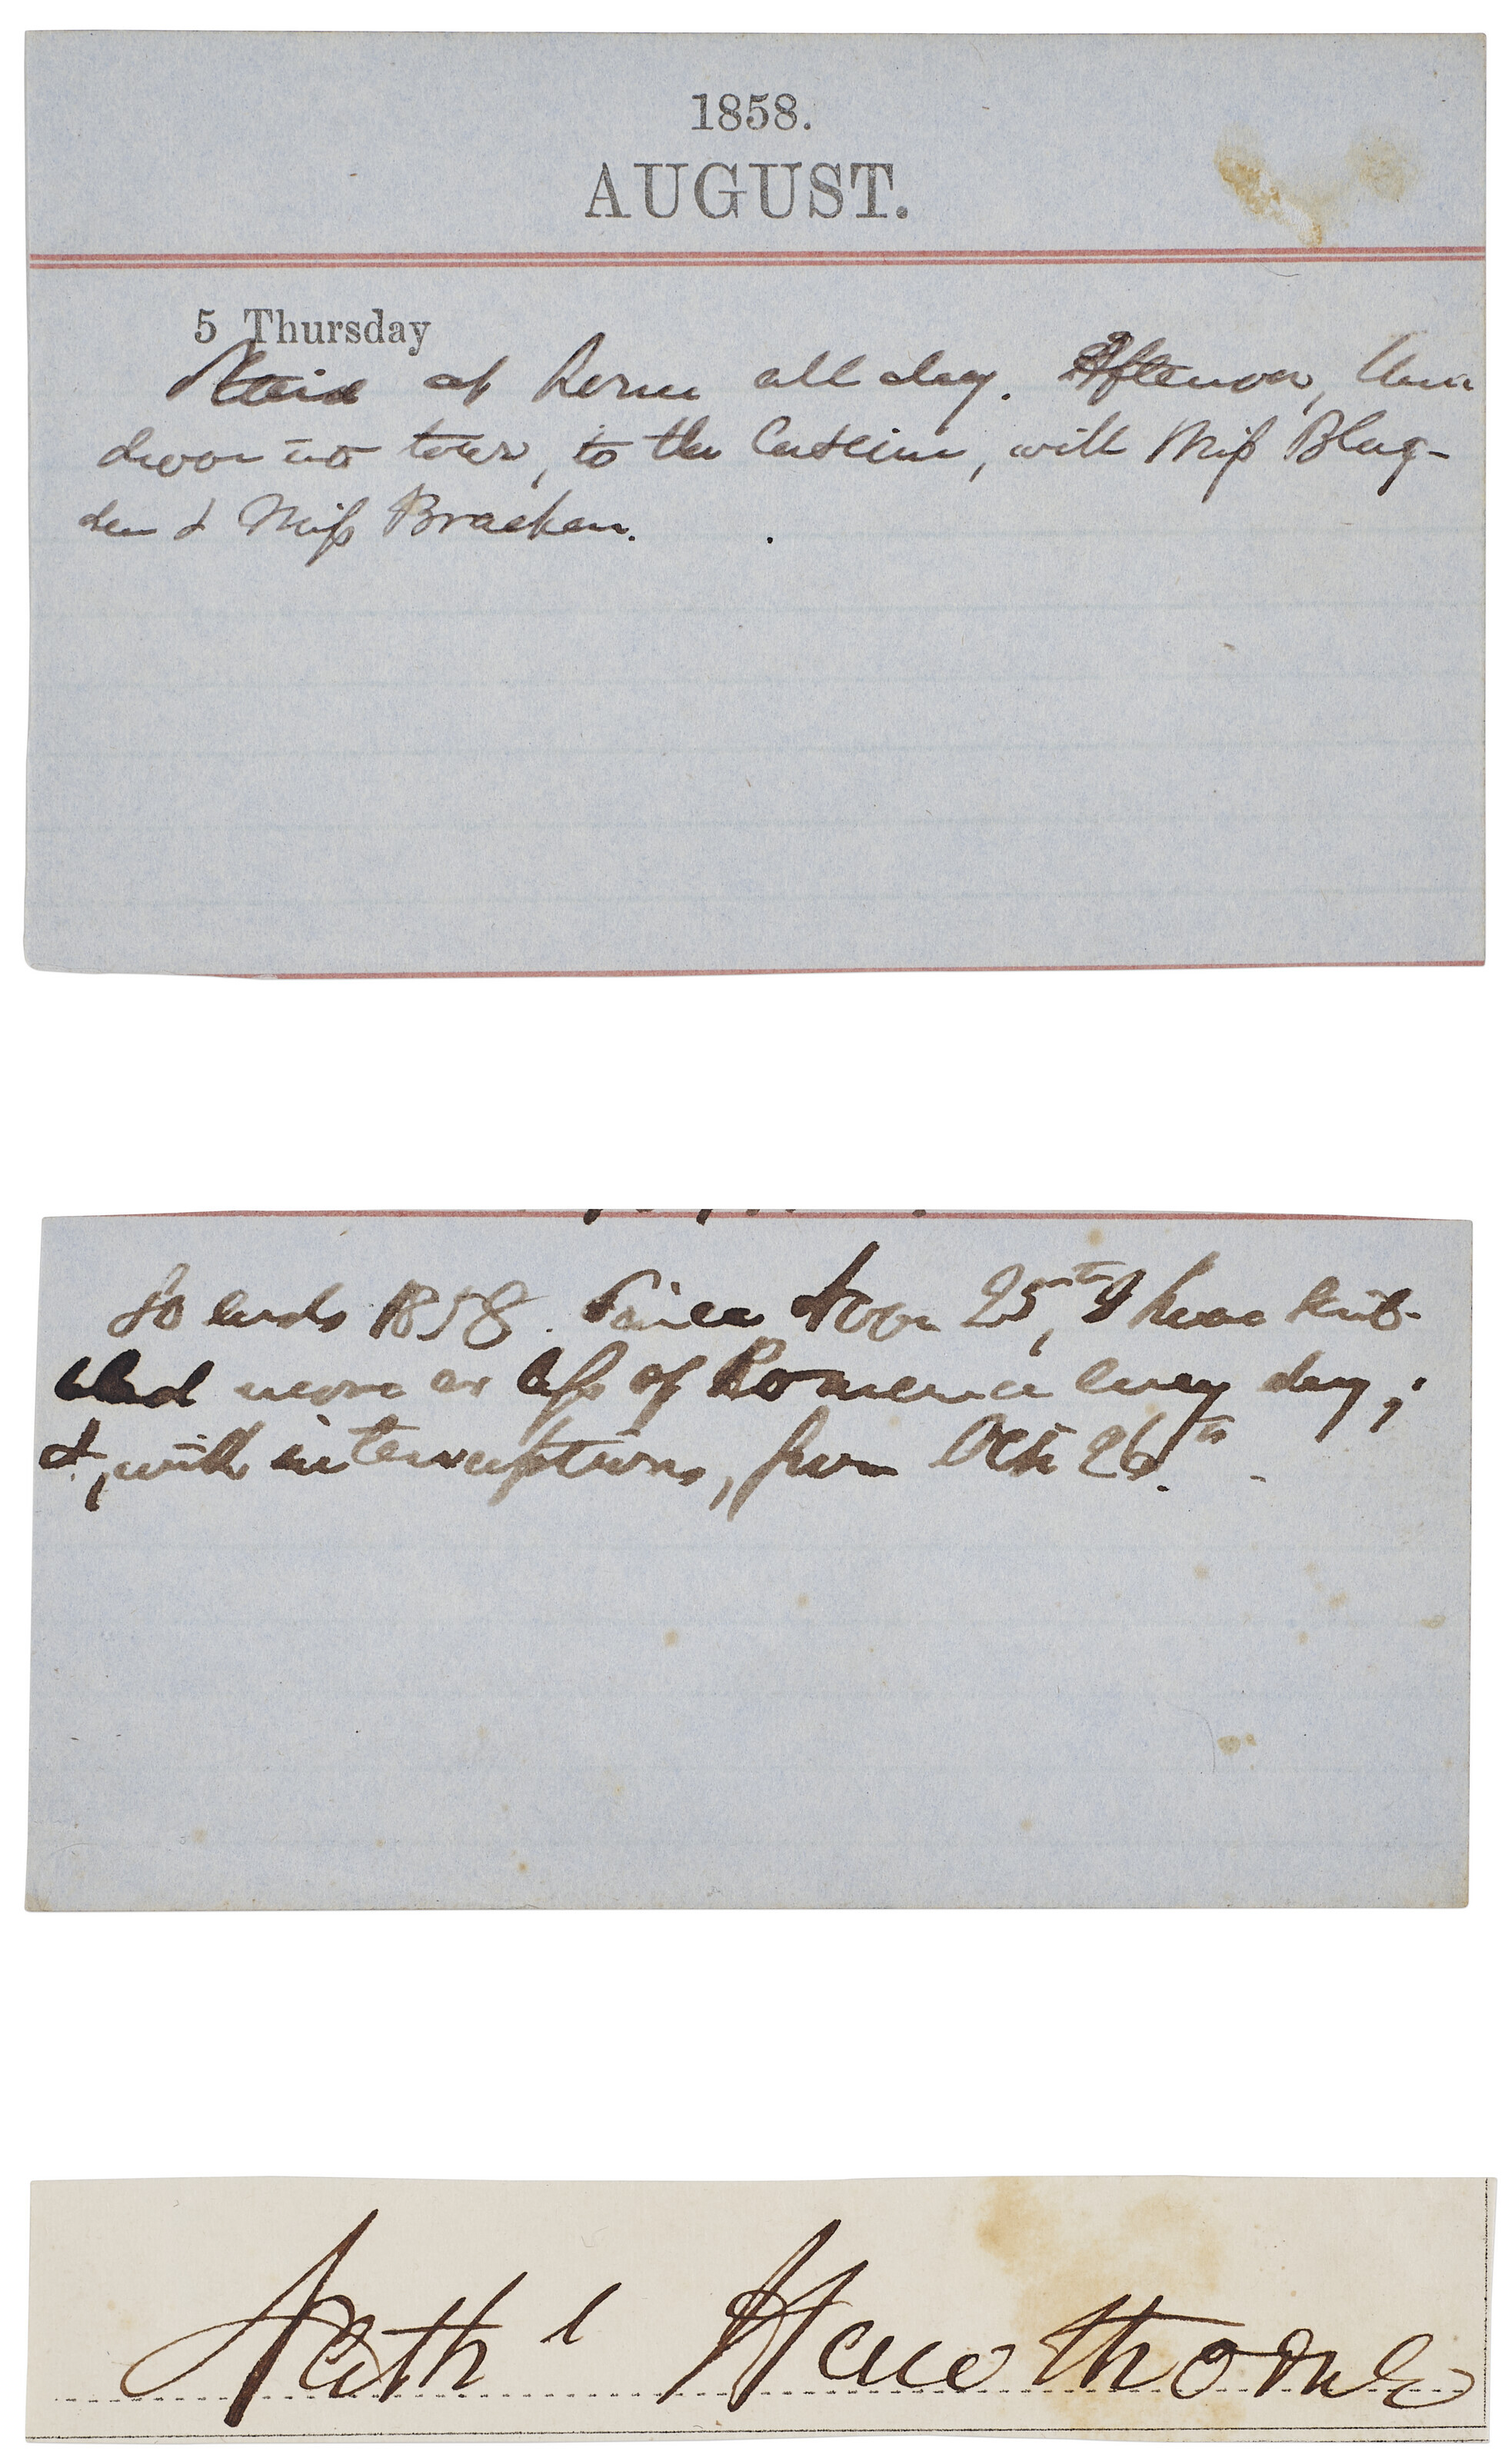 1858.
AUGUST.
5 Thursday
Staid at home all day. Afternoon, Una
drove into town, to the Cascine, with Miss Blag-
den & Miss Bracken.
So ends 1858. Since Nov 25th, I have scrib-
bled more or less of Romance every day;
&, with interruptions, from Oct 26th.
Nathl Hawthorne